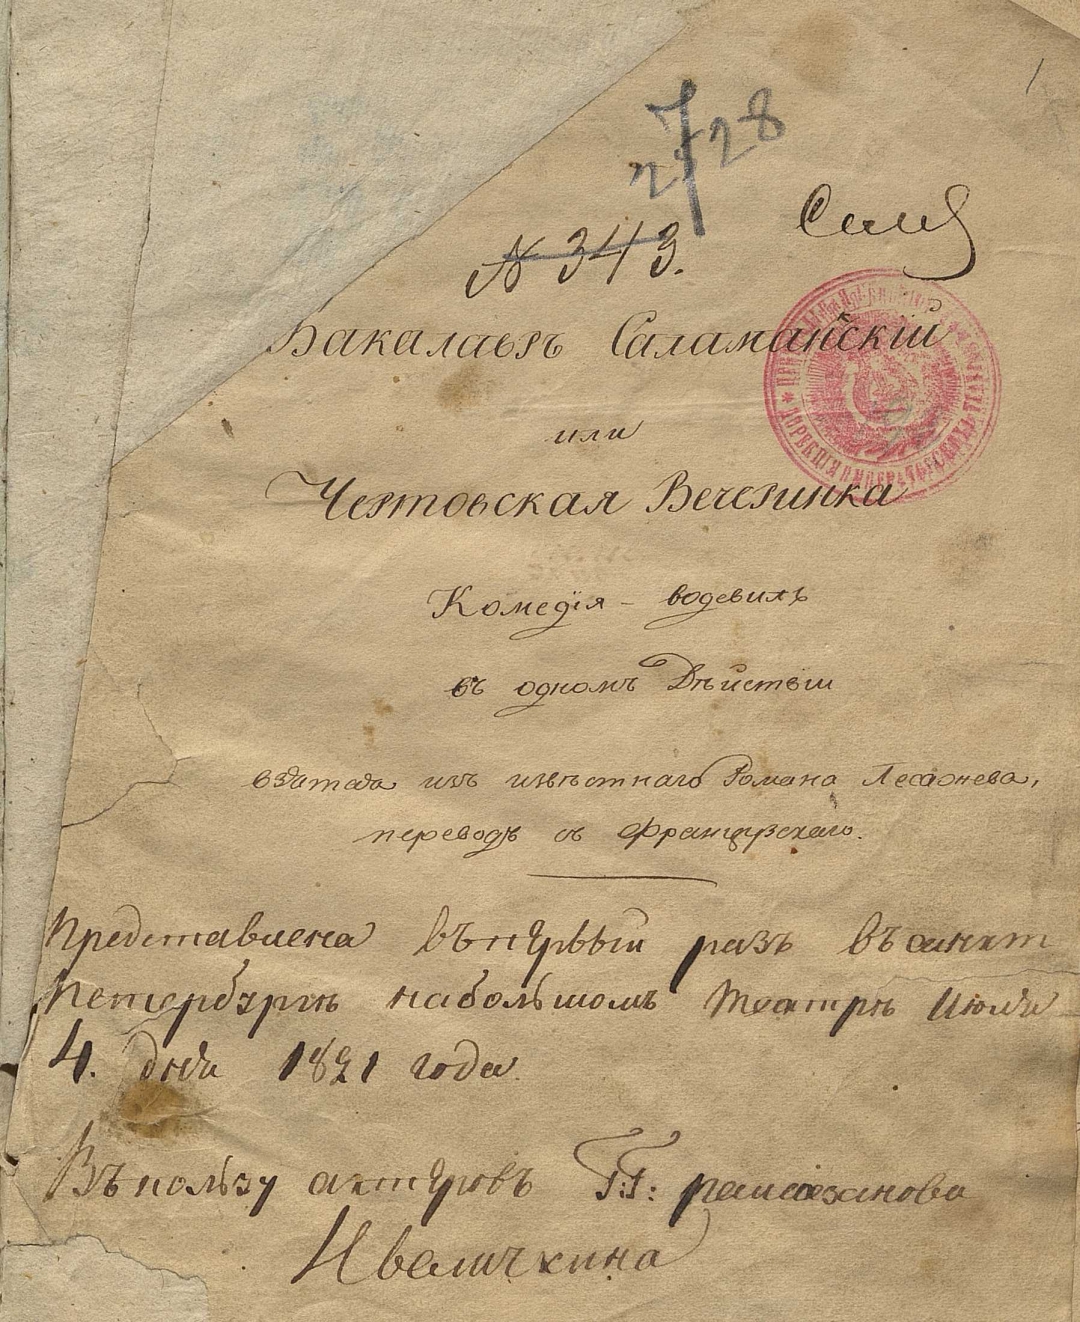 1
7
2728
Сам
№ 343.
Бакалавръ Саламанскій
или
Чертовская Вечеринка
Комедія - водевиль
въ одномъ Дѣйствіи
взятая изъ извѣстнаго Романа Лесажева,
переводъ съ французскаго.
Представлена въпервый разъ въ санкт
Петербургѣ набольшомъ театрѣ Июля
4. дня 1821 года
Въ пользу актеровъ Г:Г: рамазанова
И величкина